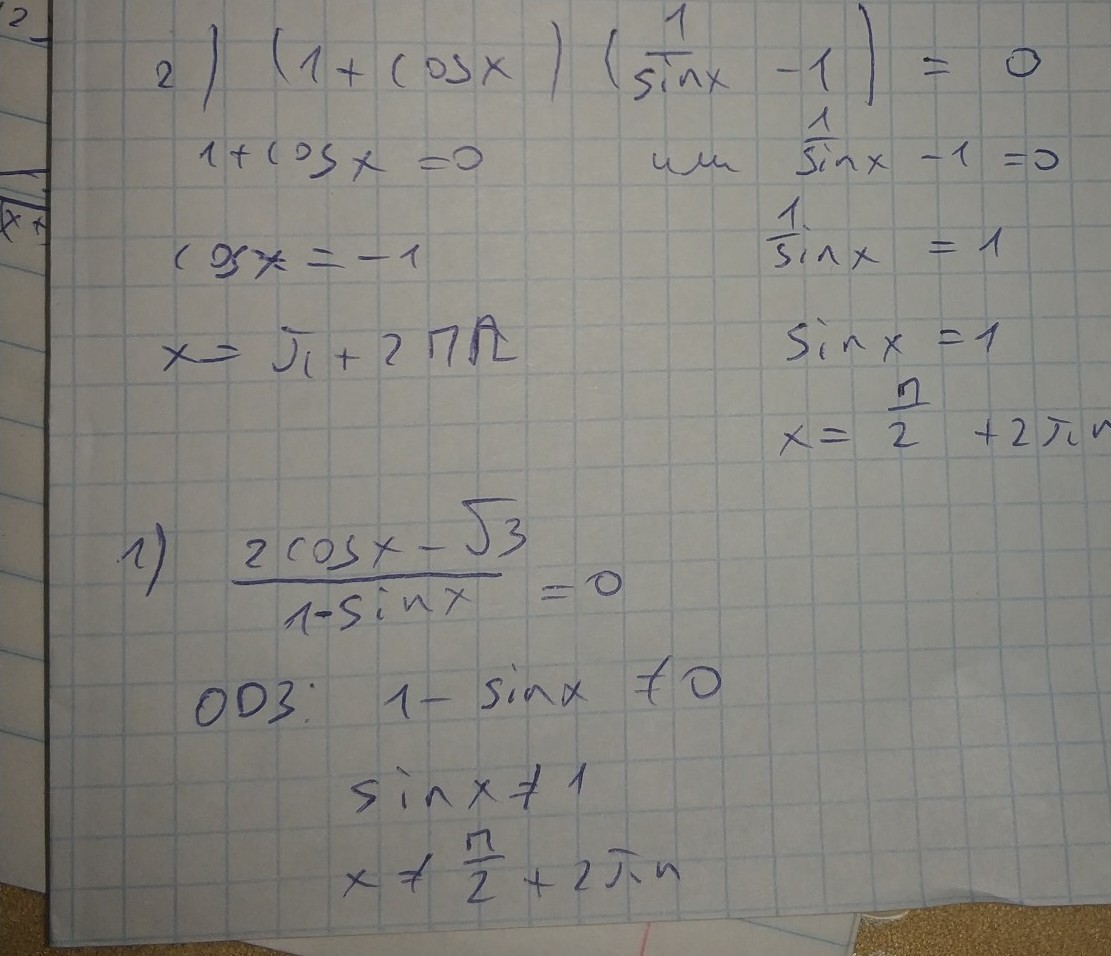 2) (1 + cosx) (1/sinx - 1) = 0
1 + cosx = 0 или 1/sinx - 1 = 0
cosx = -1 1/sinx = 1
x = π + 2πk sinx = 1
x = π/2 + 2πn
1) (2cosx - √3)/(1 - sinx) = 0
ОДЗ: 1 - sinx ≠ 0
sinx ≠ 1
x ≠ π/2 + 2πn